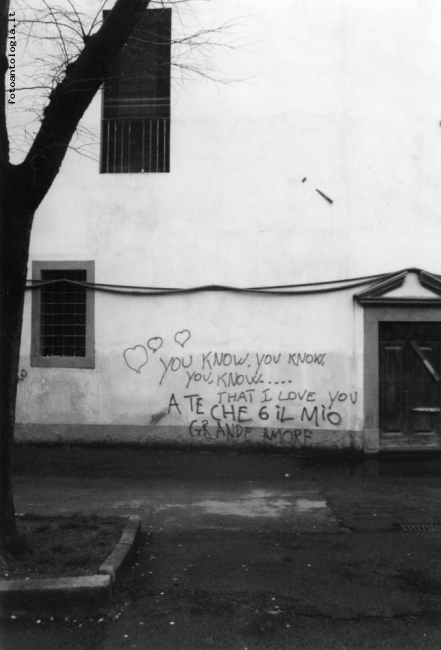 fotoantologia.it
YOU KNOW, YOU KNOW,
YOU, KNOW.....
THAT I LOVE YOU
A TE CHE 6 IL MIO
GRANDE AMORE